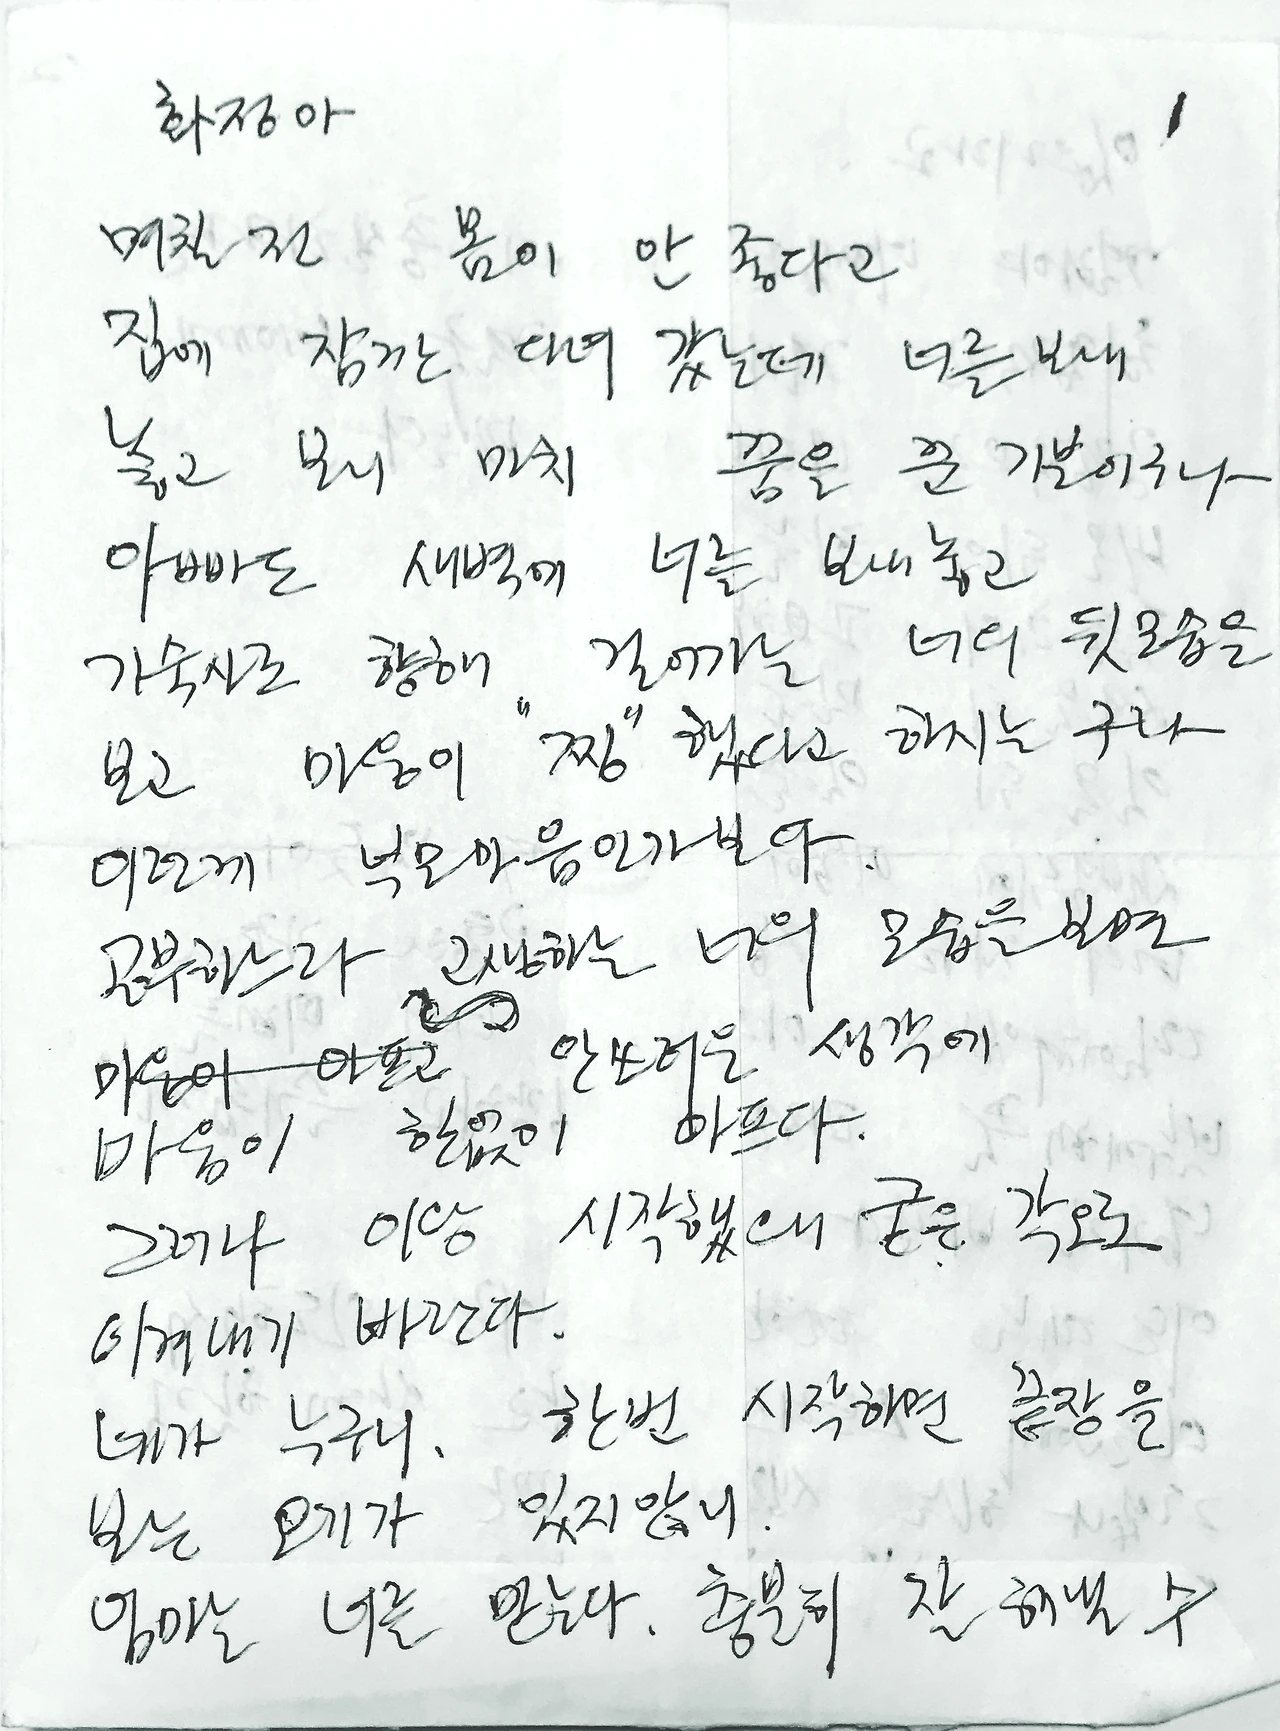 화정아
1
며칠 전 몸이 안 좋다고
집에 잠깐 다녀 갔는데 너를 보내
놓고 보니 마치 꿈을 꾼 기분이구나
아빠도 새벽에 너를 보내놓고
기숙사로 향해 걸어가는 너의 뒷모습을
보고 마음이 "찡" 했다고 하시는 구나
이런게 부모마음인가보아.
공부하느라 고생하는 너의 모습을 보면
마음이 아프고 안쓰러운 생각에
마음이 한없이 아프다.
그러나 이왕 시작했으니 굳은 각오로
이겨내기 바란다.
네가 누구니. 한번 시작하면 끝장을
보는 오기가 있지않니.
엄마는 너를 믿는다. 충분히 잘 해낼 수